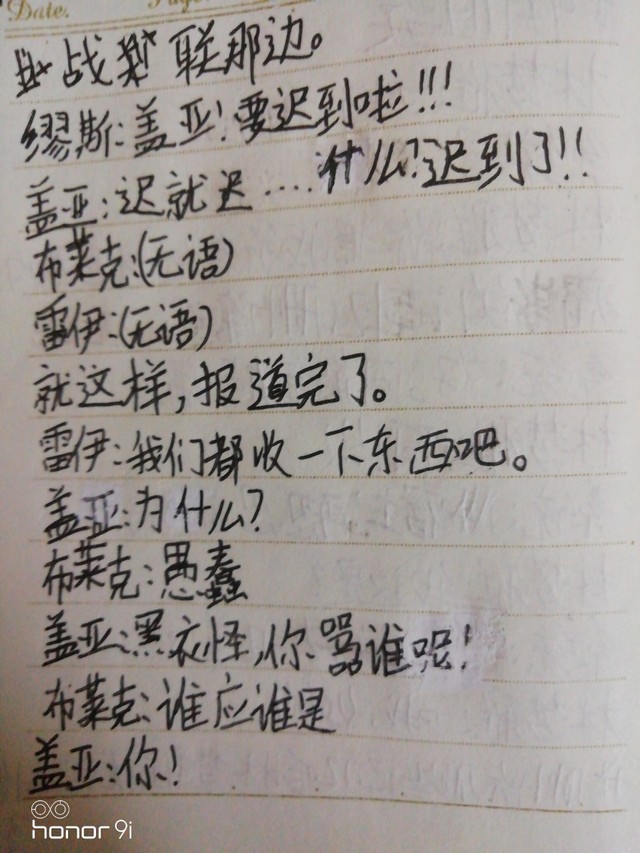 Date.
战联那边。
缪斯:盖亚!要迟到啦!!!
盖亚:迟就迟....什么?迟到了!!
布莱克:(无语)
雷伊:(无语)
就这样,报道完了。
雷伊:我们都收一下东西吧。
盖亚:为什么?
布莱克:愚蠢
盖亚:黑衣怪,你骂谁呢!
布莱克:谁应谁是
盖亚:你!
honor 9i